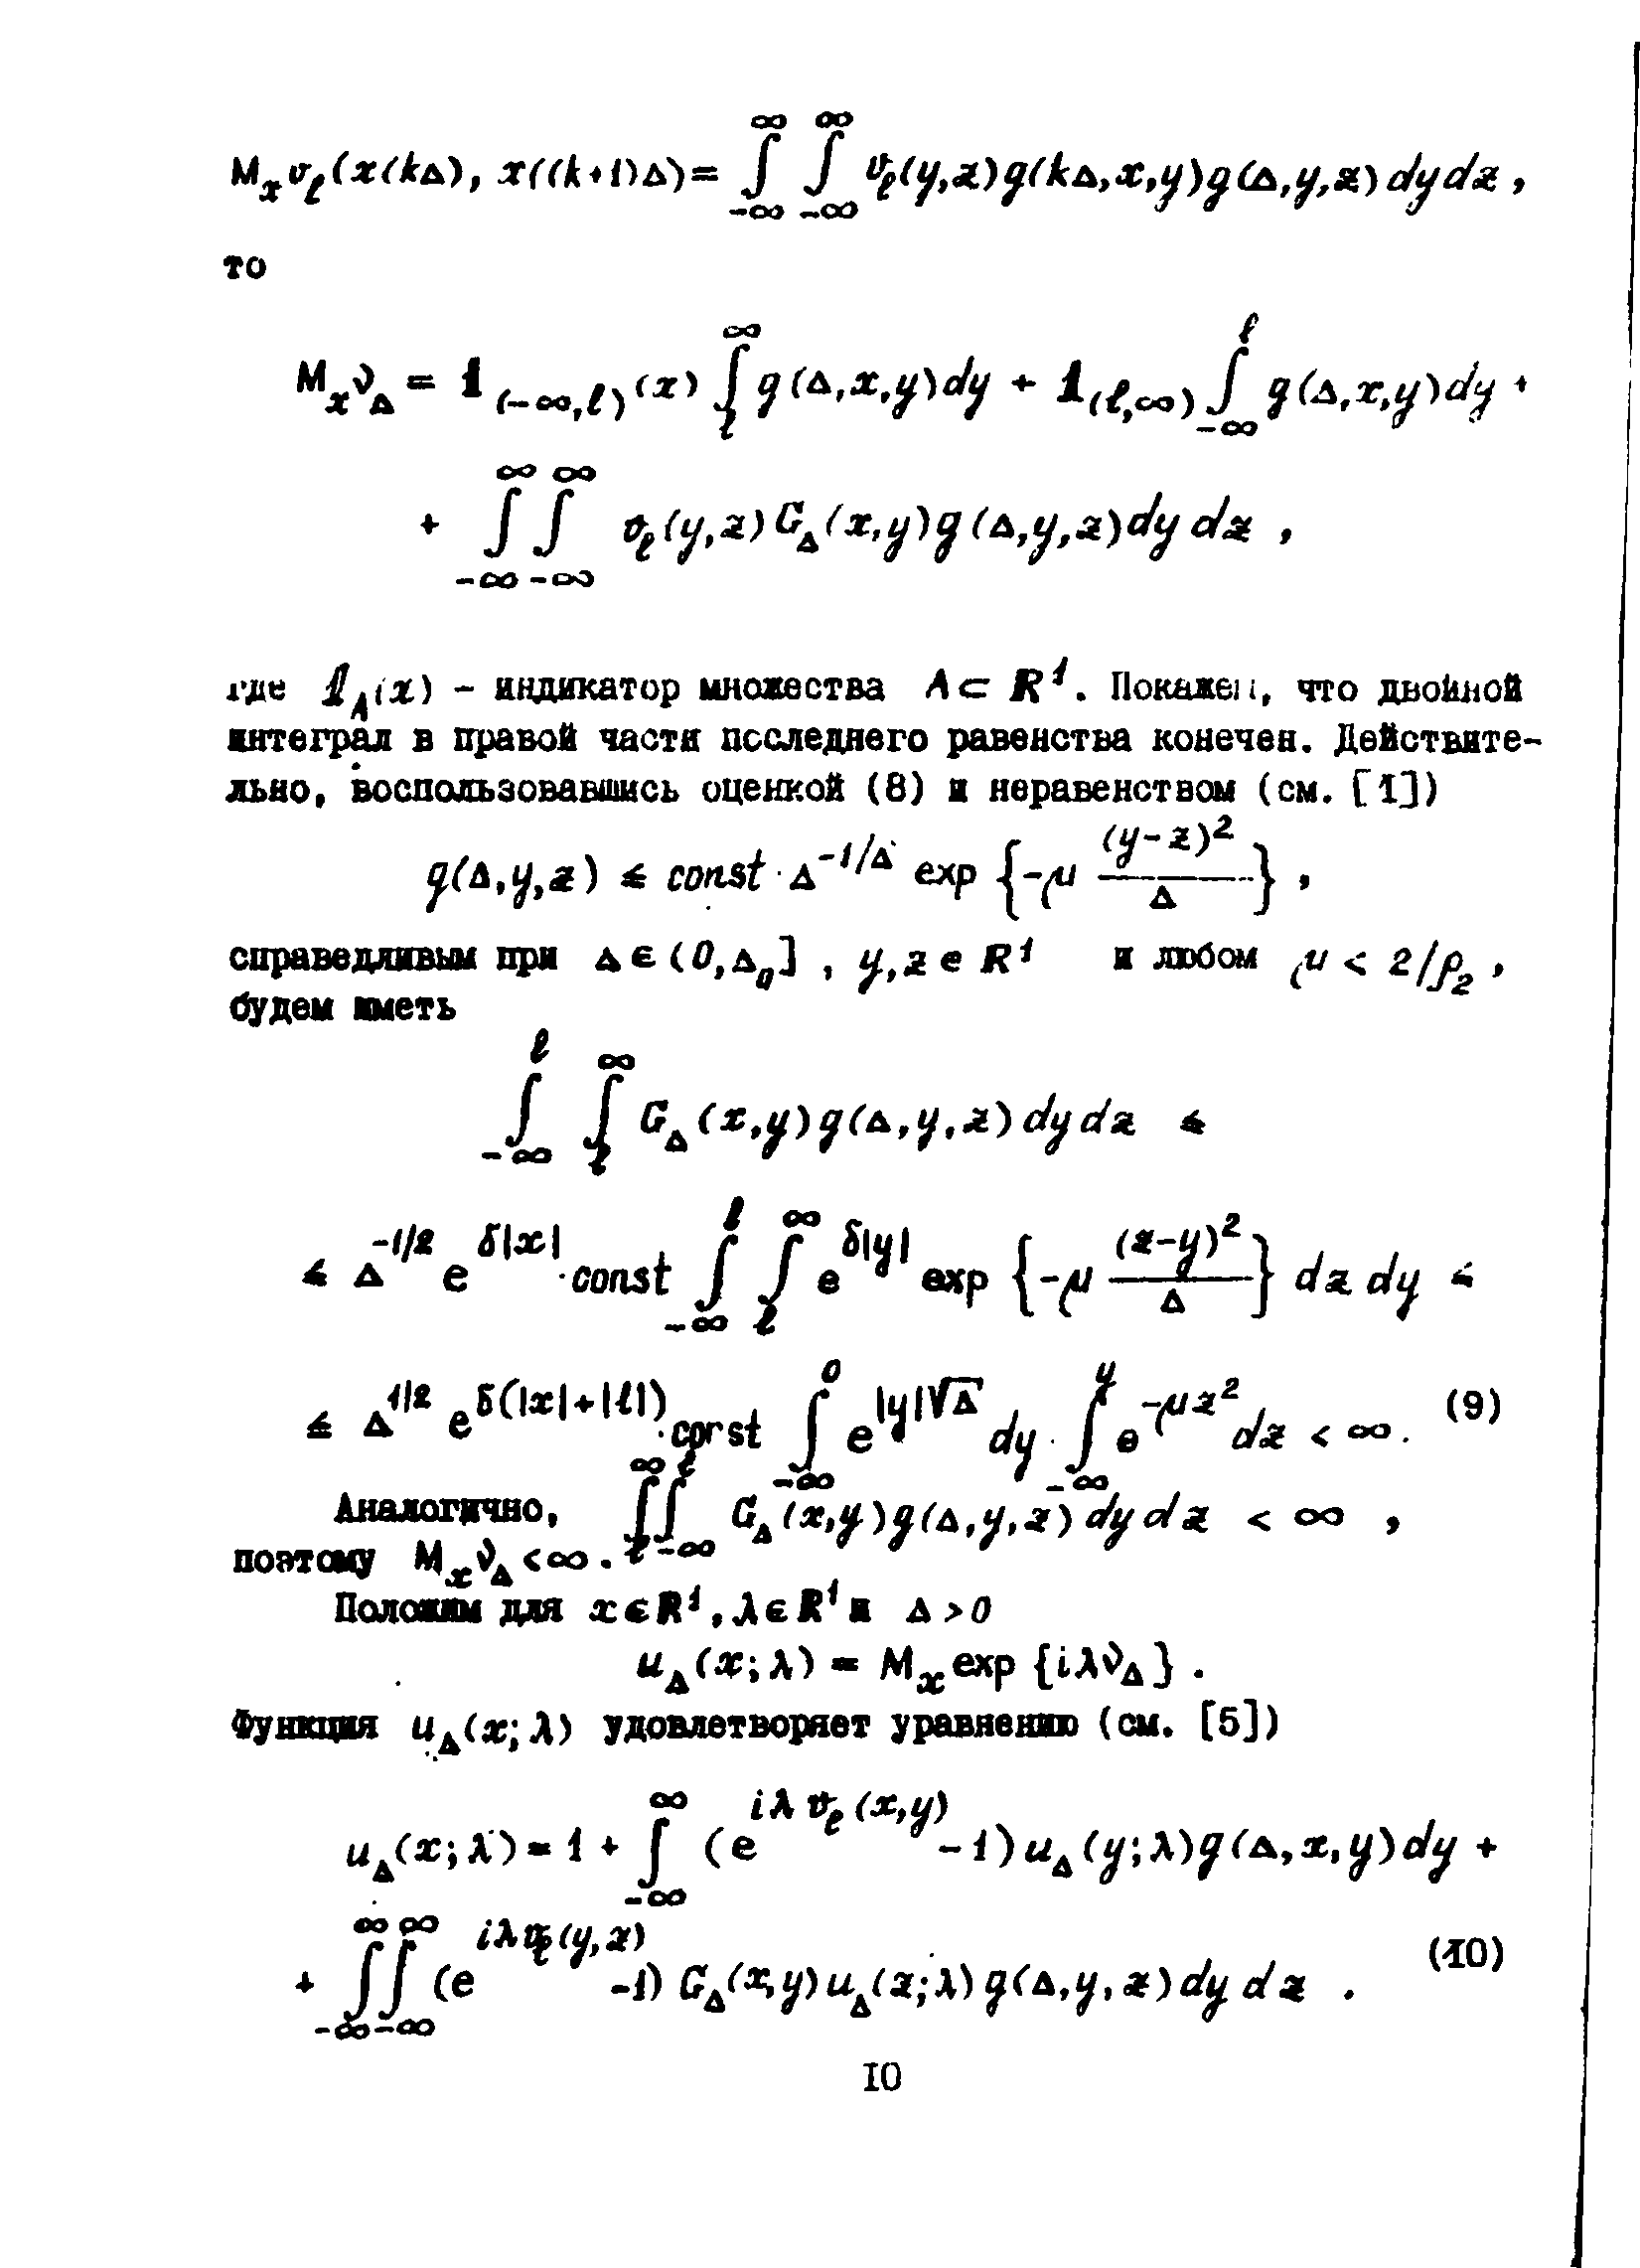 M_x v_ℓ(x(kΔ), x((k+1)Δ)= ∫_{-∞}^{∞} ∫_{-∞}^{∞} v_ℓ(y,z)g(kΔ,x,y)g(Δ,y,z)dydz,
то
M_x ν_Δ = 1_{(-∞,ℓ)}(x) ∫_ℓ^∞ g(Δ,x,y)dy + 1_{(ℓ,∞)} ∫_{-∞}^ℓ g(Δ,x,y)dy +
+ ∫_{-∞}^{∞} ∫_{-∞}^{∞} v_ℓ(y,z)G_Δ(x,y)g(Δ,y,z)dy dz ,
где 1_A(x) – индикатор множества A ⊂ R^1. Покажем, что двойной
интеграл в правой части последнего равенства конечен. Действите-
льно, воспользовавшись оценкой (8) и неравенством (см. [1])
g(Δ,y,z) ≤ const · Δ^{-1/Δ} exp {-μ (y-z)^2/Δ} ,
справедливым при Δ ∈ (0,Δ_0] , y,z ∈ R^1 и любом μ < 2/ρ_2 ,
будем иметь
∫_{-∞}^ℓ ∫_ℓ^∞ G_Δ(x,y)g(Δ,y,z)dydz ≤
≤ Δ^{-1/2} e^{δ|x|} · const ∫_{-∞}^ℓ ∫_ℓ^∞ e^{δ|y|} exp {-μ (z-y)^2/Δ} dz dy ≤
≤ Δ^{1/2} e^{δ(|x|+|ℓ|)} · const ∫_{-∞}^0 e^{|y|√Δ} dy · ∫_{-∞}^y e^{-μz^2} dz < ∞ . (9)
Аналогично, ∫_ℓ^∞ ∫_{-∞}^ℓ G_Δ(x,y)g(Δ,y,z)dydz < ∞ ,
поэтому M_x ν_Δ < ∞ .
Положим для x ∈ R^1, λ ∈ R^1 и Δ > 0
u_Δ(x;λ) = M_x exp {iλν_Δ} .
Функция u_Δ(x;λ) удовлетворяет уравнению (см. [5])
u_Δ(x;λ) = 1 + ∫_{-∞}^{∞} (e^{iλv_ℓ(x,y)} -1)u_Δ(y;λ)g(Δ,x,y)dy +
+ ∫_{-∞}^{∞} ∫_{-∞}^{∞} (e^{iλv_ℓ(y,z)} -1) G_Δ(x,y)u_Δ(z;λ)g(Δ,y,z)dy dz . (10)
10